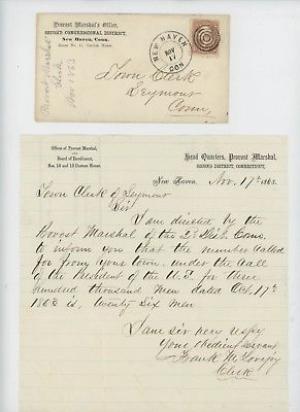 Provost Marshal's Office,
SECOND CONGRESSIONAL DISTRICT,
New Haven, Conn.
NEW HAVEN
NOV
17
CON
Provost Marshal
Clerk
Nov 1863
Town Clerk
Seymour
Conn.
Office of Provost Marshal,
AND
Board of Enrollment,
Head Quarters, Provost Marshal,
SECOND DISTRICT, CONNECTICUT,
New Haven, Nov. 17th 1863.
Town Clerk of Seymour
Sir
I am directed by the
Provost Marshal of the 2d Dist. Conn.
to inform you that the number called
for from your town. under the Call
of the President of the U.S. for three
hundred thousand men dated Oct. 17th
1863 is, twenty six men
I am sir very respy
Your obedient servant
Frank M. Lovejoy
Clerk